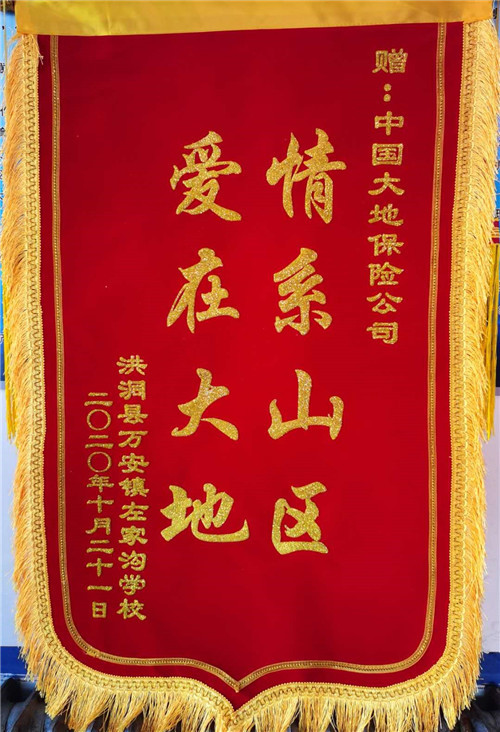 赠：中国大地保险公司
情系山区
爱在大地
洪洞县万安镇左家沟学校
二〇二〇年十月二十一日